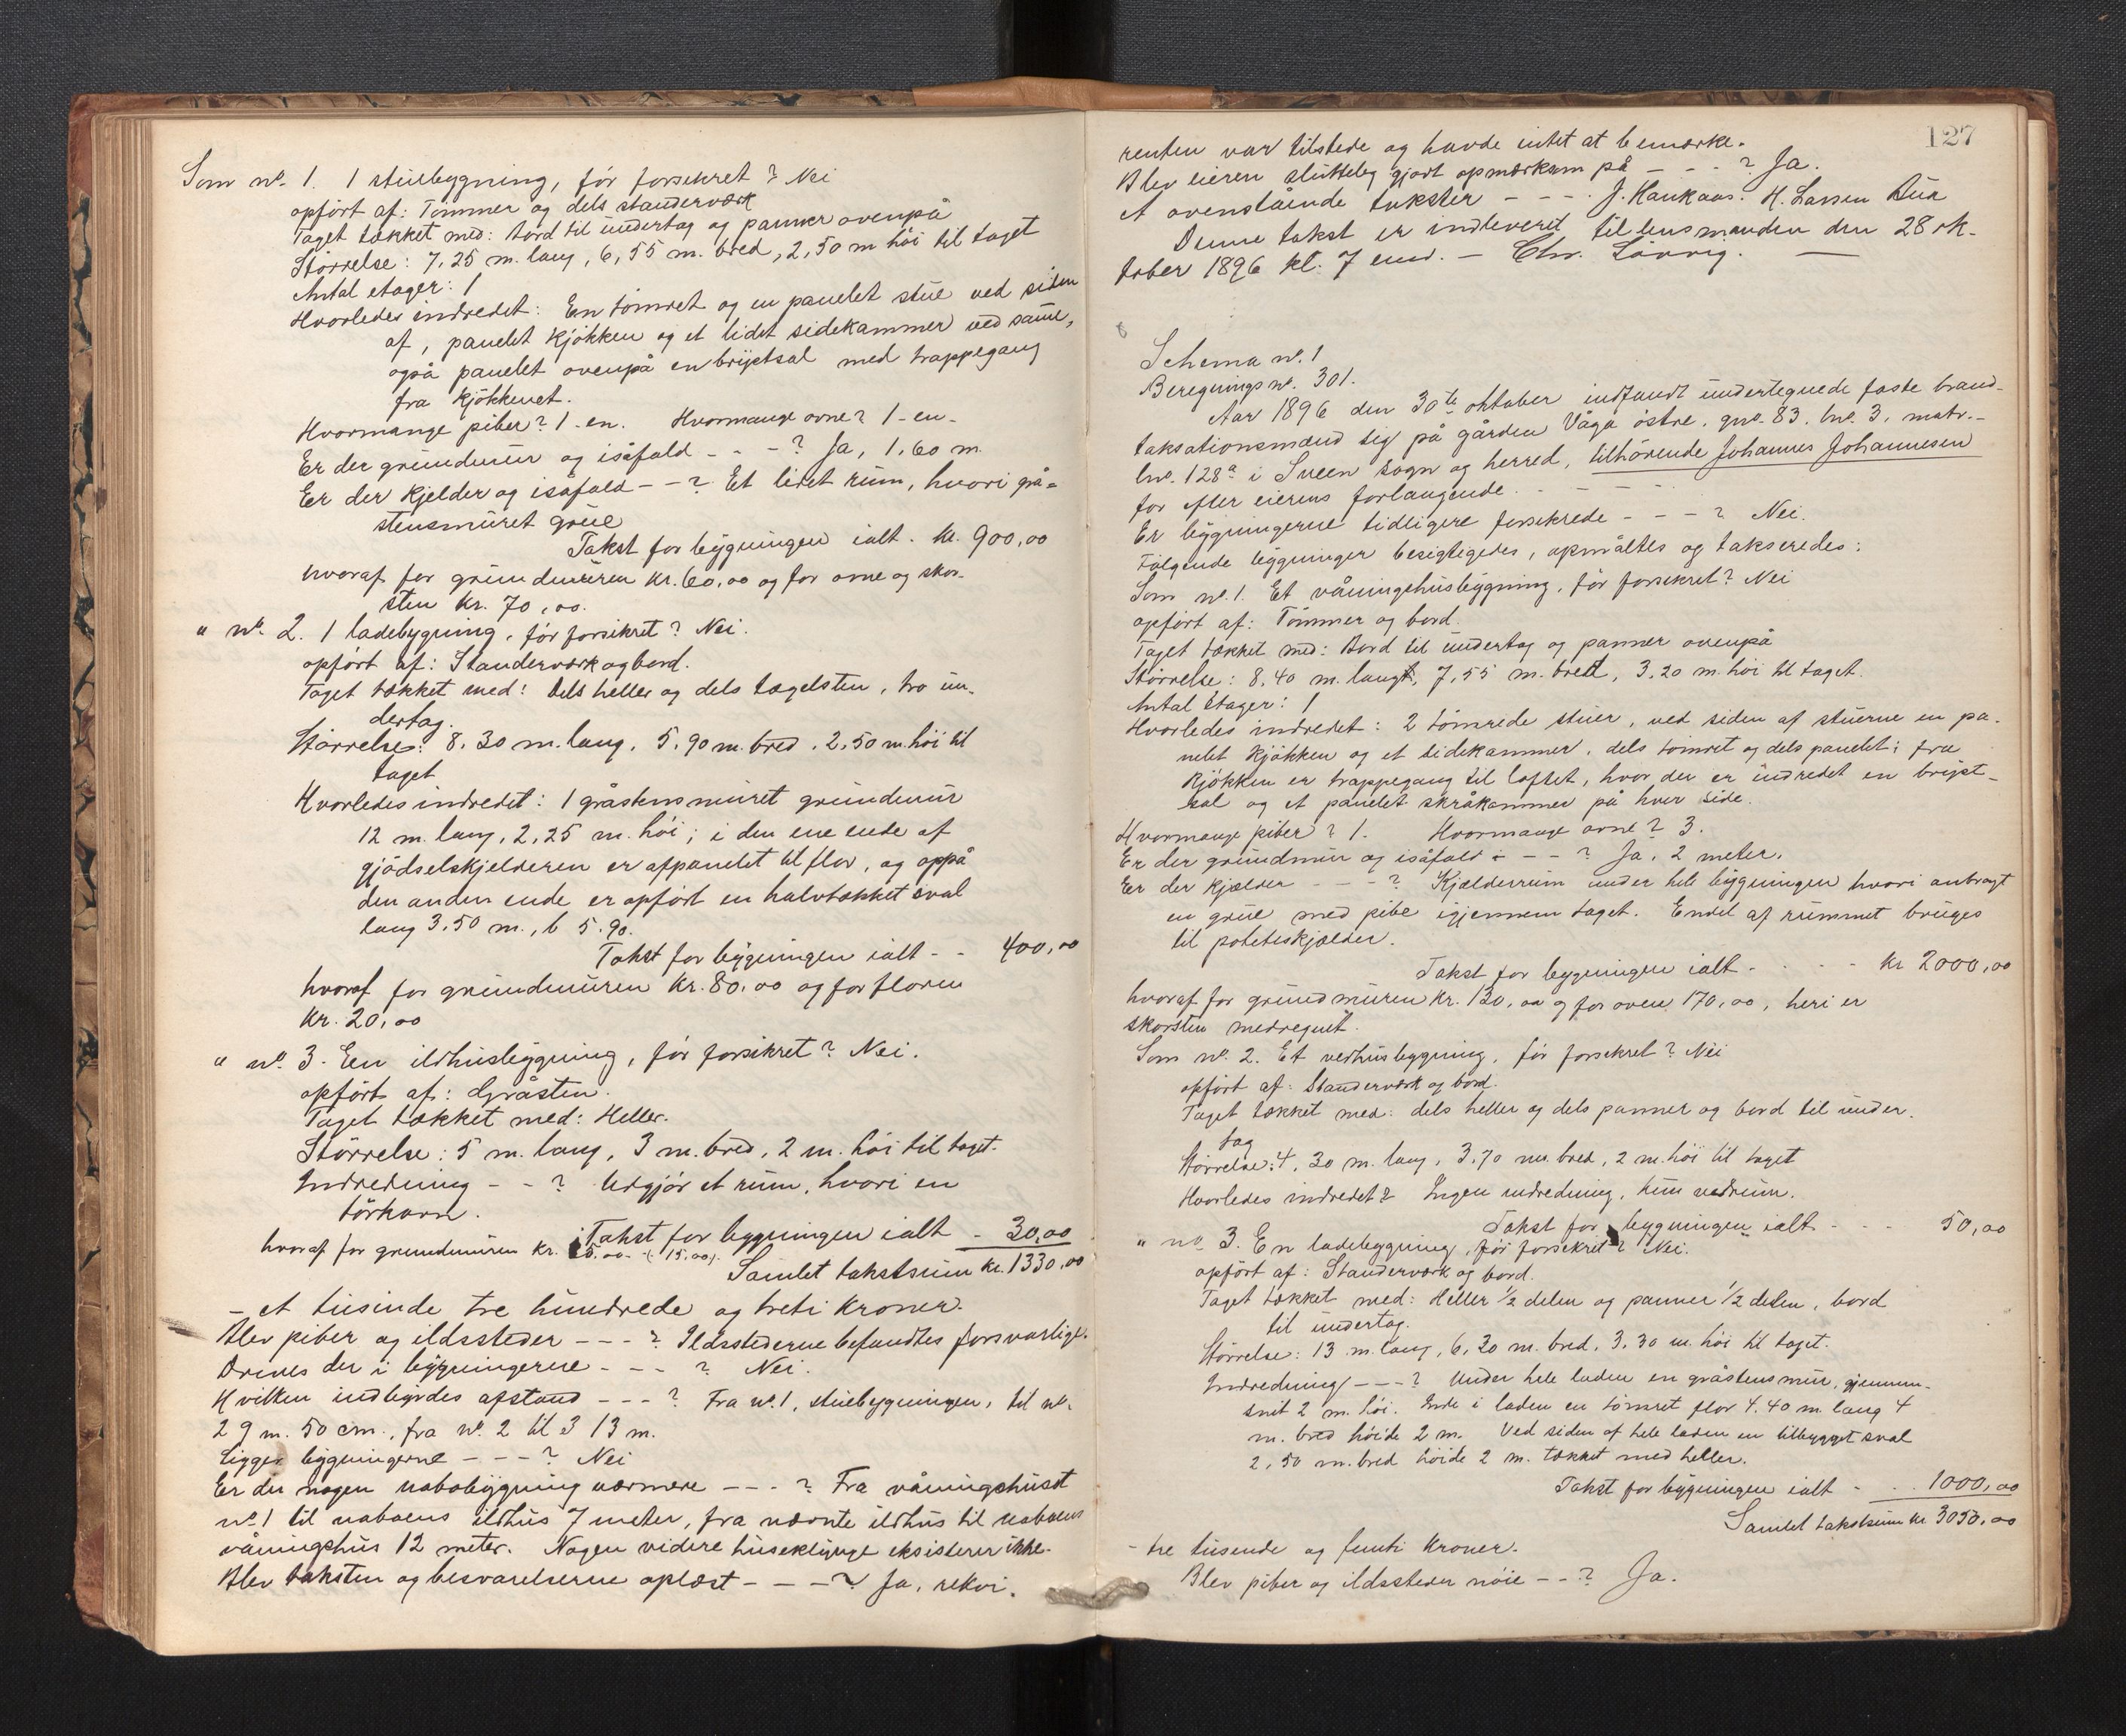 Som no. 1. 1 stuebygning, før forsikret? Nei
opført af: Tømmer og dels standerværk
Taget tækket med: bord til undertag og panner ovenpå
Størrelse: 7,25 m. lang, 6,55 m. bred, 2,50 m høi til taget
Antal etager: 1
Hvorledes indredet: En tømret og en panelet stue ved siden
af, panelet kjøkken og et lidet sidekammer ved same,
også panelet ovenpå en brystsal med trappegang
fra kjøkkenet.
Hvormange piber? 1 - en. Hvormange ovne? 1 - en -
Er der grundmur og isåfald - - -? Ja, 1,60 m.
Er der kjelder og isåfald - - ? Et lidet rum, hvori grå=
stensmuret grue
Takst for bygningen ialt. kr. 900,00
hvoraf for grundmuren kr. 60,00 og for ovne og skor-
sten kr. 70,00.
" no. 2. 1 ladebygning, før forsikret? Nei.
opført af: Standerværk og bord.
Taget tækket med: dels heller og dels tegelsten, tro un-
dertag.
Størrelse: 8,30 m. lang, 5,90 m. bred, 2,50 m. høi til
taget
Hvorledes indredet: 1 gråstensmuret grundmur
12 m. lang, 2,25 m. høi; i den ene ende af
gjødselskjelderen er afpanelet til flor, og oppå
den anden ende er opført en halvtækket sval
lang 3,50 m., b 5,90.
Takst for bygningen ialt - - 400,00
hvoraf for grundmuren kr. 80,00 og for floren
kr. 20,00
" no 3. En ildhusbygning, før forsikret? Nei.
opført af: Gråsten.
Taget tækket med: Heller.
Størrelse: 5 m. lang, 3 m. bred, 2 m. høi til taget.
Indredning - - ? Udgjør et rum, hvori en
tørkovn.
Takst for bygningen ialt - 30,00
hvoraf for grundmuren kr. 15.00 - (15.00).
Samlet takstsum kr. 1330,00
- et tusinde tre hundrede og treti kroner.
Blev piber og ildssteder - - - ? Ildsstederne befandtes forsvarlige.
Drives der i bygningerne - - - ? Nei.
Hvilken indbyrdes afstand - - - ? Fra no. 1, stuebygningen, til no.
2 9 m. 50 cm., fra no. 2 til 3 13 m.
Ligger bygningerne - - - ? Nei
Er der nogen nabobygning nærmere - - - ? Fra våningshuset
no 1 til naboens ildhus 7 meter, fra nævnte ildhus til naboens
våningshus 12 meter. Nogen videre huseklynge eksisterer ikke.
Blev taksten og besvarelserne oplæst - - - ? Ja, rekvi-
127
renten var tilstede og havde intet at bemærke.
Blev eieren sluttelig gjort opmærksom på - - - ? Ja.
At ovenstående takster - - - . J. Haukaas. H. Larsen Dua
Denne takst er indleveret til lensmanden den 28 ok-
tober 1896 kl. 7 emd. - Chr.
Schema no. 1
Beregnings no. 301.
Aar 1896 den 30te oktober indfandt undertegnede faste brand-
taksationsmænd sig på gården Våga østre, gno. 83. bno. 3, matr.-
lno. 128a i Sveen sogn og herred, tilhørende Johannes Johannesen
for efter eierens forlangende. - - - -
Er bygningerne tidligere forsikrede - - - ? Nei.
Følgende bygninger besigtigedes, opmåltes og takseredes:
Som no. 1. Et våningshusbygning, før forsikret? Nei
opført af: Tømmer og bord.
Taget tækket med: Bord til undertag og panner ovenpå
Størrelse: 8,40 m. langt, 7,55 m. bredt, 3,20 m. høi til taget.
Antal Etager: 1
Hvorledes indredet: 2 tømrede stuer, ved siden af stuerne en pa-
nelet kjøkken og et sidekammer, dels tømret og dels panelet; fra
kjøkken er trappegang til loftet, hvor der er indredet en bryst-
sal og et panelet skråkammer på hver side.
Hvormange piber? 1. Hvormange ovne? 3.
Er der grundmur og isåfald - - - ? Ja. 2 meter.
Er der kjælder - - - ? Kjælderrum under hele bygningen hvori anbragt
en grue med pibe igjennem taget. Endel af rummet bruges
til poteteskjælder.
Takst for bygningen ialt - - - - kr 2000,00
hvoraf for grundmuren kr. 130,00 og for ovene 170,00, heri er
skorsten medregnet.
Som no. 2. Et vedhusbygning, før forsikret? Nei
opført af: Standerværk og bord.
Taget tækket med: dels heller og dels panner og bord til under-
tag
Størrelse: 4,30 m. lang, 3,70 m. bred, 2 m. høi til taget
Hvorledes indredet? Ingen indredning, kun vedrum.
Takst for bygningen ialt - - - 50,00
" no 3. En ladebygning, før forsikret? Nei.
opført af: Standerværk og bord.
Taget tækket med: Heller 1/2 delen og panner 1/2 delen, bord
til undertag.
Størrelse: 13 m. lang, 6,30 m. bred, 3,30 m. høi til taget.
Indredning - - - ? Under hele laden en gråstensmur, gjennem-
snit 2 m. høi. Inde i laden en tømret flor 4.40 m lang 4
m. bred høide 2 m. Ved siden af hele laden en tilbygget sval
2,50 m. bred høide 2 m. tækket med heller.
Takst for bygningen ialt - - - 1000,00
Samlet takstsum kr 3050,00
- tre tusende og femti kroner.
Blev piber og ildssteder nøie - - ? Ja.